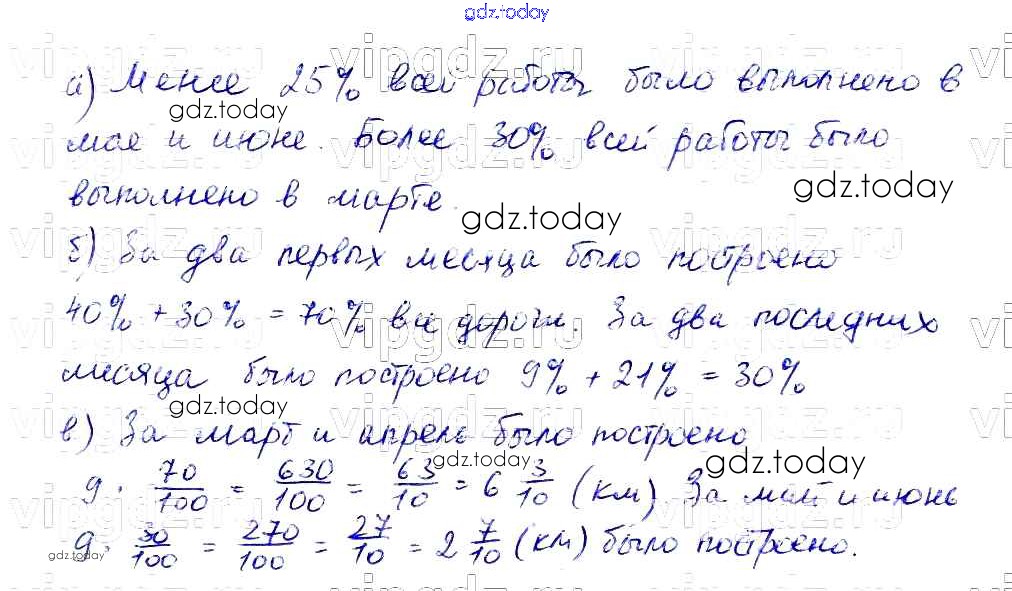 gdz.today
а) Менее 25% всей работы было выполнено в
мае и июне. Более 30% всей работы было
выполнено в марте.
б) За два первых месяца было построено
40% + 30% = 70% все дороги. За два последних
месяца было построено 9% + 21% = 30%
в) За март и апрель было построено
9 · 70/100 = 630/100 = 63/10 = 6 3/10 (км). За май и июнь
9 · 30/100 = 270/100 = 27/10 = 2 7/10 (км) было построено.
vipgdz.ru
gdz.today